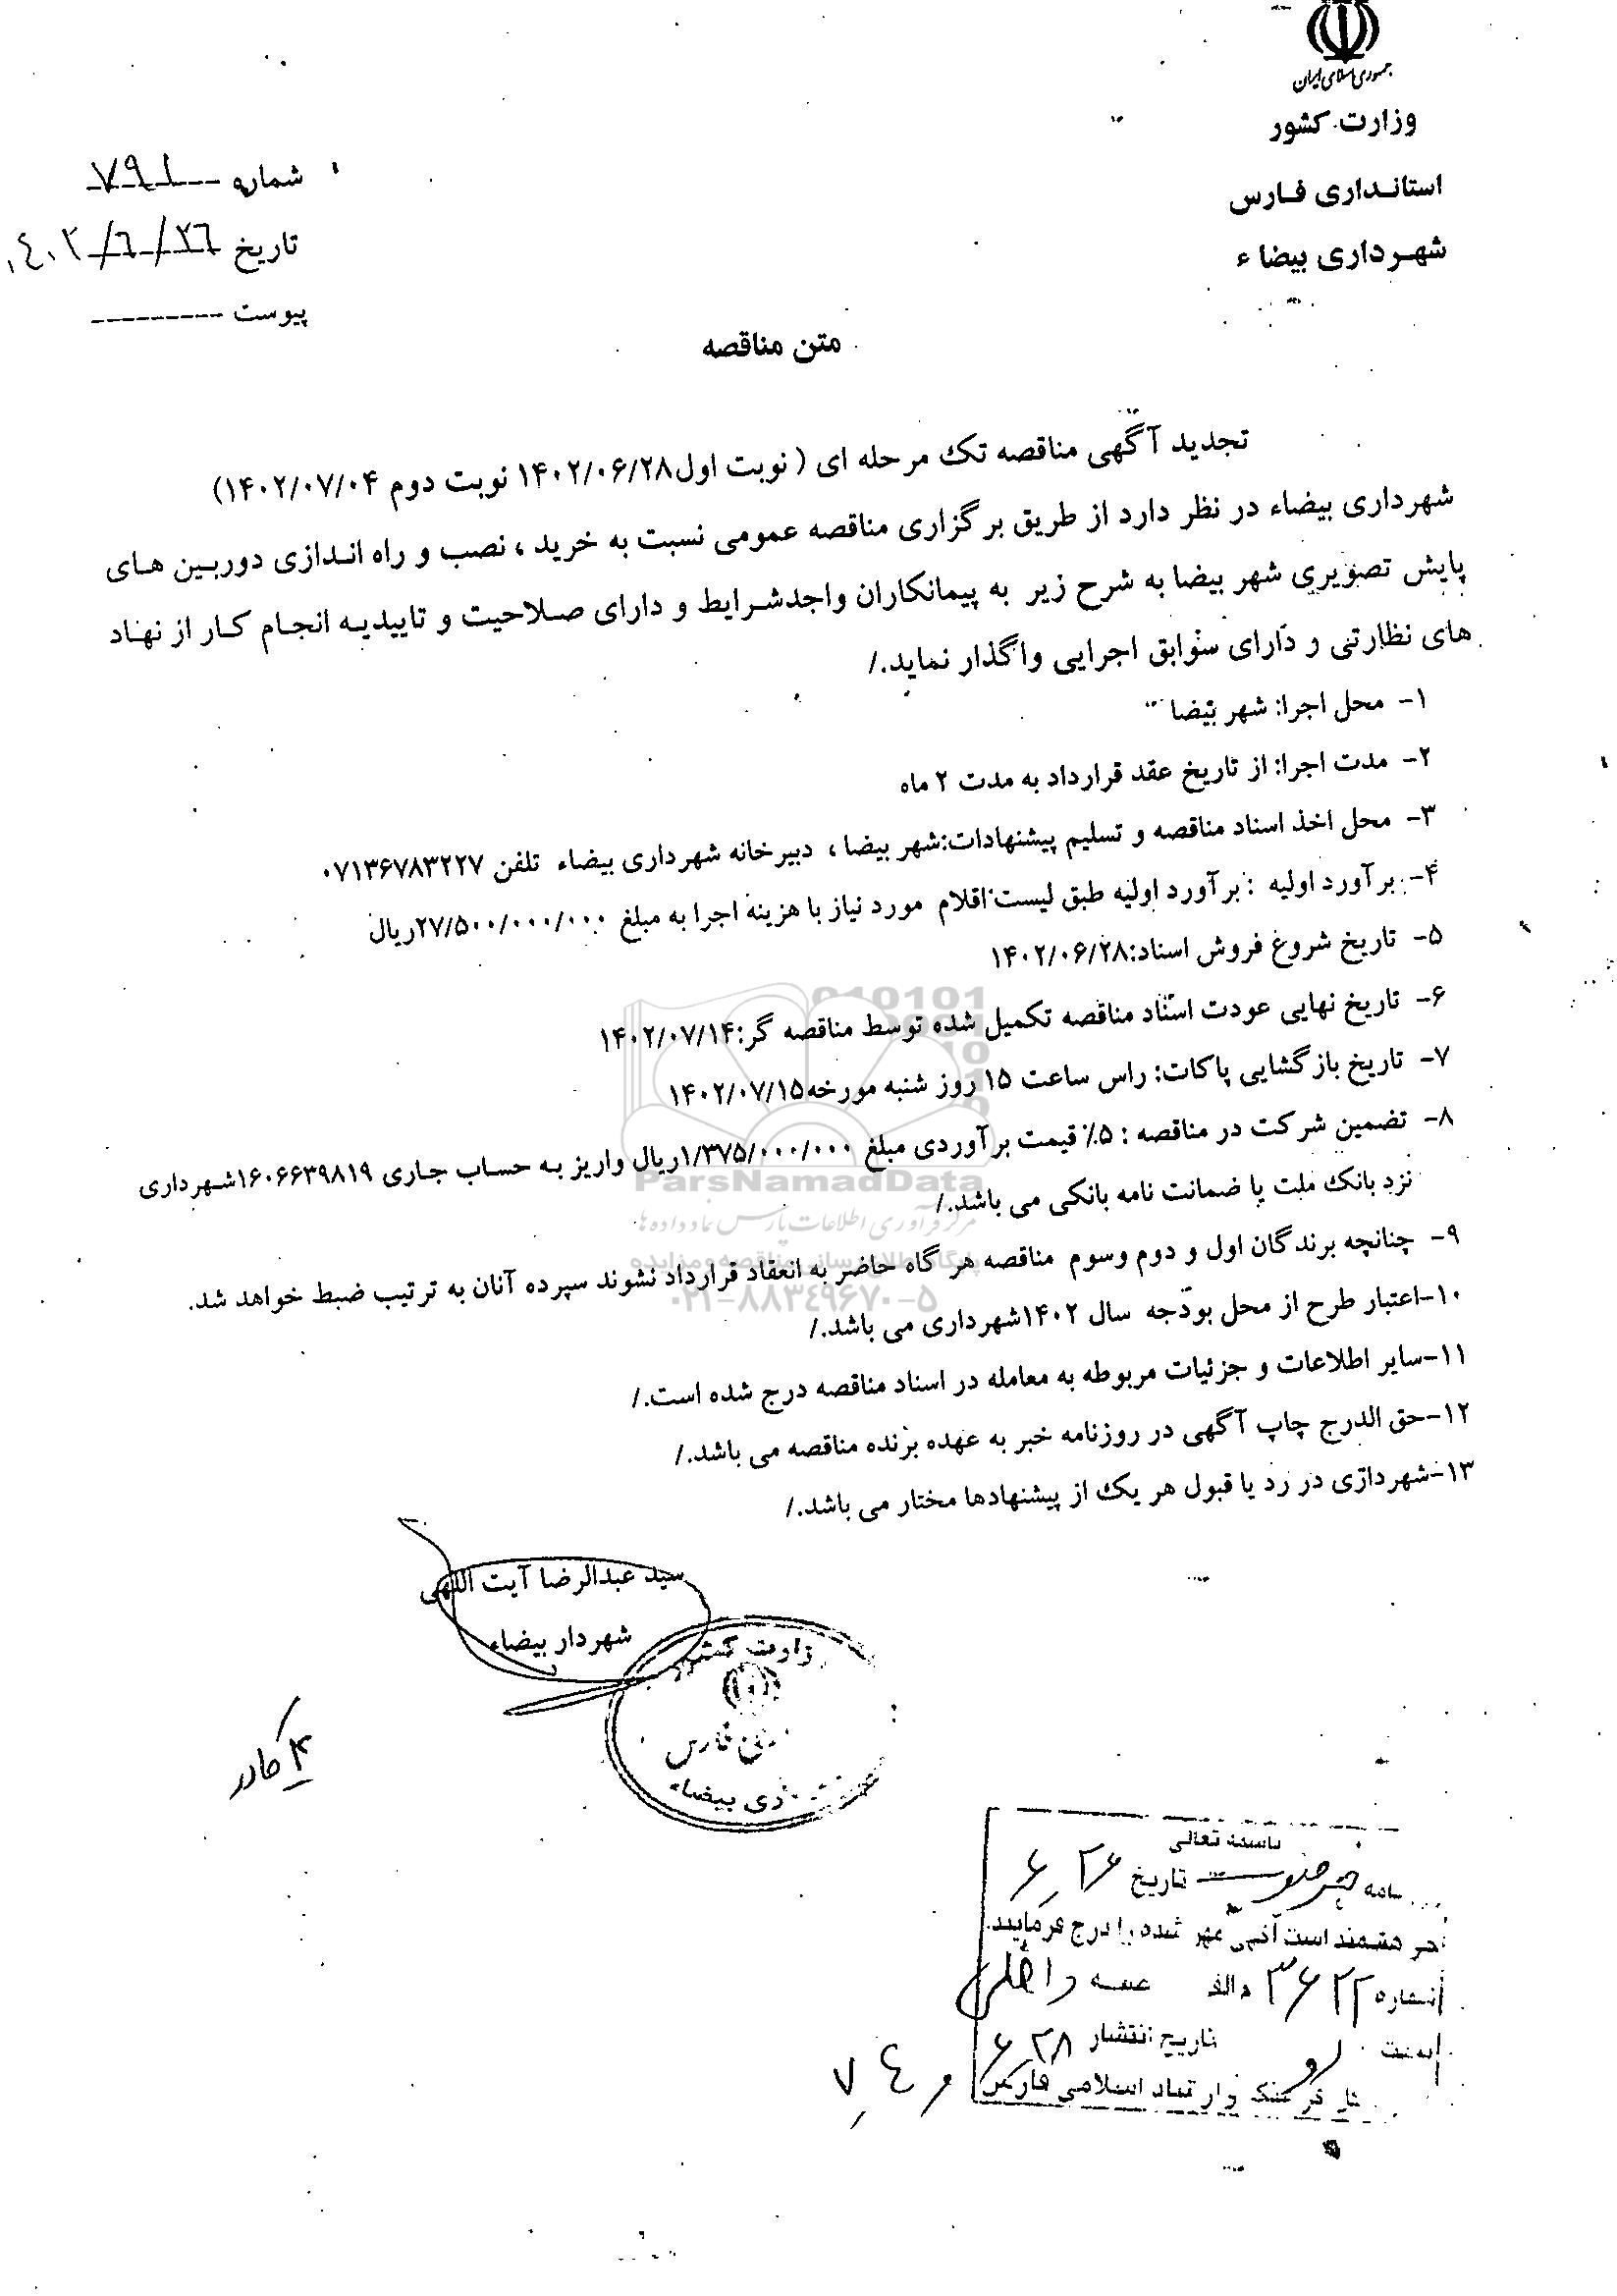 جمهوری اسلامی ایران
وزارت کشور
استانداری فارس
شهرداری بیضاء
شماره ۷۹۱
تاریخ ۱۴۰۲/۶/۲۶
پیوست
متن مناقصه
تجدید آگهی مناقصه تک مرحله ای ( نوبت اول۱۴۰۲/۰۶/۲۸ نوبت دوم ۱۴۰۲/۰۷/۰۴)
شهرداری بیضاء در نظر دارد از طریق برگزاری مناقصه عمومی نسبت به خرید ، نصب و راه اندازی دوربین های
پایش تصویری شهر بیضا به شرح زیر به پیمانکاران واجدشرایط و دارای صلاحیت و تاییدیه انجام کار از نهاد
های نظارتی و دارای سوابق اجرایی واگذار نماید./
۱- محل اجرا: شهر بیضا
۲- مدت اجرا: از تاریخ عقد قرارداد به مدت ۲ ماه
۳- محل اخذ اسناد مناقصه و تسلیم پیشنهادات:شهر بیضا ، دبیرخانه شهرداری بیضاء تلفن ۰۷۱۳۶۷۸۳۲۲۷
۴- برآورد اولیه : برآورد اولیه طبق لیست اقلام مورد نیاز با هزینه اجرا به مبلغ ۲۷/۵۰۰/۰۰۰/۰۰۰ریال
۵- تاریخ شروغ فروش اسناد:۱۴۰۲/۰۶/۲۸
۶- تاریخ نهایی عودت اسناد مناقصه تکمیل شده توسط مناقصه گر:۱۴۰۲/۰۷/۱۴
۷- تاریخ بازگشایی پاکات: راس ساعت ۱۵ روز شنبه مورخه۱۴۰۲/۰۷/۱۵
۸- تضمین شرکت در مناقصه : ۵٪ قیمت برآوردی مبلغ ۱/۳۷۵/۰۰۰/۰۰۰ریال واریز به حساب جاری ۱۶۰۶۶۳۹۸۱۹شهرداری
نزد بانک ملت یا ضمانت نامه بانکی می باشد./
۹- چنانچه برندگان اول و دوم وسوم مناقصه هر گاه حاضر به انعقاد قرارداد نشوند سپرده آنان به ترتیب ضبط خواهد شد.
۱۰-اعتبار طرح از محل بودجه سال ۱۴۰۲شهرداری می باشد./
۱۱-سایر اطلاعات و جزئیات مربوطه به معامله در اسناد مناقصه درج شده است./
۱۲-حق الدرج چاپ آگهی در روزنامه خبر به عهده برنده مناقصه می باشد./
۱۳-شهرداری در رد یا قبول هر یک از پیشنهادها مختار می باشد./
ParsNamadData
مرکز فرآوری اطلاعات پارس نماد داده ها
پایگاه اطلاع رسانی مناقصه و مزایده
۰۲۱-۸۸۳۴۹۶۷۰-۵
سید عبدالرضا آیت اللهی
شهردار بیضاء
وزارت کشور
فارس
بیضاء
۴ کادر
باسمه تعالی
تاریخ ۶٫۲۶
است آگهی مهر شده را درج فرمایید
شماره ۳۶۲۲ م الف
تاریخ انتشار ۶٫۲۸ و ۷٫۴
فرهنگ و ارشاد اسلامی فارس